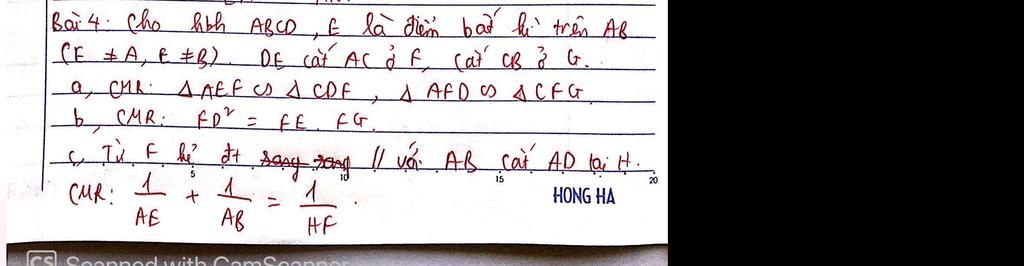 Bài 4: Cho hbh ABCD, E là điểm bất kì trên AB
(E ≠ A, E ≠ B). DE cắt AC ở F, cắt CB ở G.
a, CMR: Δ AEF ∽ Δ CDF, Δ AFD ∽ Δ CFG
b, CMR: FD² = FE. FG.
c, Từ F kẻ đt // với AB cắt AD tại H.
5 10 15 20
CMR: 1/AE + 1/AB = 1/HF.
HONG HA
CS Scanned with CamScanner